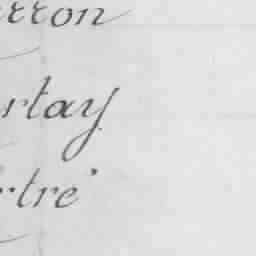 rron
rtay
tre